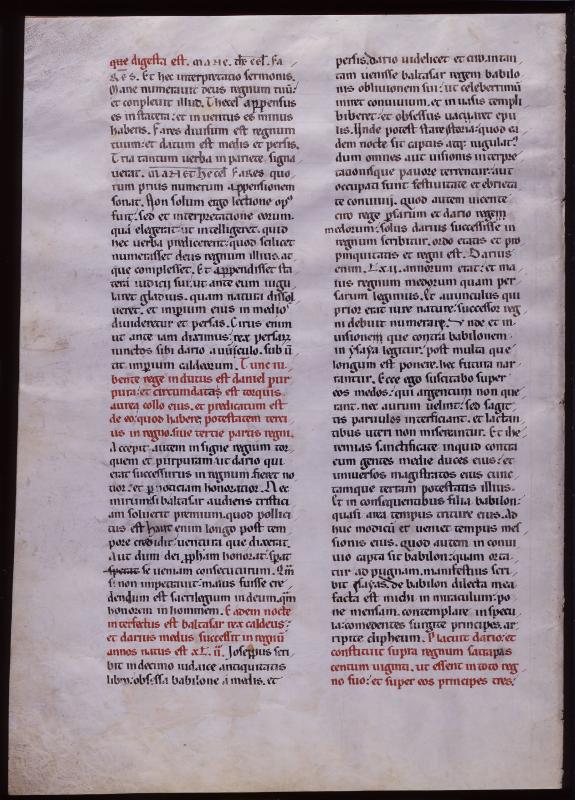 que digesta est. MANE. thecel. Fa
Res. Et hec interpretatio sermonis.
Mane numeravit deus regnum tuū:
et complevit illud. Thecel appensus
es in statera: et inventus es minus
habens. Fares divisum est regnum
tuum: et datum est medis et persis.
Tria tantum verba in pariete. signa
verat. MANE THeCEL FARES quo
rum prius numerum appensionem
sonat. Non solum ergo lectione opꝰ
fuit: sed et interpretatione eorum.
que elegerat: ut intelligeret. quid
hec verba predicerent: quod scilicet
numerasset deus regnum illius. at
que complesset. Et appendisset sta
tera iudicii sui: ut ante eum iugu
laret gladius. quam natura dissol
veret. et imperium eius in medos
divideretur et persas. Cirus enim
ut ante iam diximus: rex persarum
iunctos sibi dario avunculo. sub ū
tit imperium caldeorum. Tunc iu
bente rege indutus est daniel pur
pura: et circumdatus est torquis
aurea collo eius. et predicatum est
de eo: quod habere potestatem terti
us in regno. sive tertie partis regni.
Accepit autem insigne regium tor
quem et purpuram: ut dario qui
erat successurus in regnum fieret no
tior: et per noticiam honoratior. Nec
mirum si baltasar audiens tristici
am solverit premium. quod pollici
tus est haut enim longo post tem
pore credidit: ventura que dixerat.
Aut dum dei prophetam honorat: sperat
sperat se veniam consecuturum. Qđ
si non impetravit: maius fuisse cre
dendum est sacrilegium in deum. quam
honorem in hominem. Eadem nocte
interfectus est baltasar rex caldeus:
et darius medus successit in regnū
annos natus est xL. ii. Josephus scri
bit in decimo iudaice antiquitatis
libro: obsessa babilone a medis. et
persis. dario videlicet et ciro. in tan
tam venisse baltasar regem babilo
nis oblivionem sui: ut celeberrimū
iniret convivium. et in vasis templi
biberet: et obsessus vacaret epu
lis. Unde potest stare storia: quod ea
dem nocte sit captus atque iugulat?
dum omnes aut visionis interpre
tationisque pavore terrentur: aut
occupati sunt festivitate et ebrieta
te convivii. quod autem vicente
ciro rege persarum et dario regem
medorum: solus darius successisse in
regnum scribitur. ordo etatis et pro
pinquitatis et regni est. Darius
enim. Lxii. annorum erat: et ma
ius regnum medorum quam per
sarum legimus. Et avunculus qui
prior erat iure nature: successor reg
ni debuit numerare. Unde et in
visionem que contra babilonem
in ysaya legitur: post multa que
longum est ponere. hec futura nar
rantur. Ecce ego suscitabo super
eos medos: qui argentum non que
rant. nec aurum velint: sed sagit
tis parvulos interficiant. et lactan
tibus uteri non miserantur. Et ihe
remias sanctificate inquid contra
eum gentes medie duces eius: et
universos magistratos eius cunc
tamque terram potestatis illius.
Et in consequentibus filia babilon:
quasi area tempus triture eius. Ad
huc modicum et veniet tempus mes
sionis eius. quod autem in convi
vio capta sit babilon: quam orta
tur ad pugnam. manifestius scri
bit ysayas. de babilon dilecta mea
facta est michi in miraculum: po
ne mensam. contemplare in specu
la: comedentes surgite principes. ar
ripite clipheum. Placuit dario: et
constituit supra regnum satrapas
centum viginti. ut essent in toto reg
no suo: et super eos principes tres.